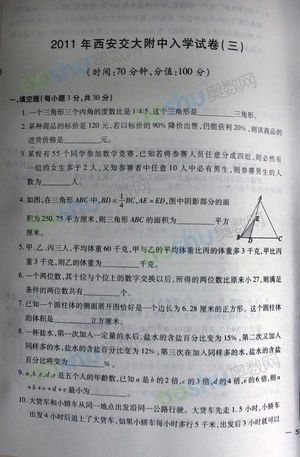 2011年西安交大附中入学试卷(三)
(时间:70分钟,分值:100分)
一、填空题(每小题3分,共30分)
1.一个三角形三个内角的度数比是1:4:5,这个三角形是 三角形。
2.某种商品的标价是120元,若以标价的90%降价出售,仍能获利20%,则该商品的
进货价格是 元。
3.某校有55个同学参加数学竞赛,已知若将参赛人员任意分成四组,则必然有
一组的女生多于2人,又知参赛者中任意10人中必有男生,则参赛男生的人
数为 人。
4.如图,在三角形ABC中,BD=1/4BC,AE=ED,图中阴影部分的面
积为250.75平方厘米,则三角形ABC的面积为 平方
厘米。
A
E
B
D
C
5.甲、乙、丙三人,平均体重60千克,甲与乙的平均体重比丙的体重多3千克,甲比丙
重3千克,则乙的体重为 千克。
6.一个两位数,其十位与个位上的数字交换以后,所得的两位数比原来小27,则满足
条件的两位数共有 个。
7.已知一个圆柱体的侧面展开图恰好是一个边长为6.28厘米的正方形。这个圆柱
体的体积是 立方厘米。
8.一杯盐水,第一次加入一定量的水后,盐水的含盐百分比变为15%,第二次又加入
同样多的水,盐水的含盐百分比变为12%,第三次在加入同样多的水,盐水的含盐
百分比将变为 %。
9.a,b,c,d,e是五个人的年龄数,已知a是b的2倍,c的3倍,d的4倍,e的6倍,则a
+b+c+d+e最小为 。
10.大货车和小轿车从同一地点出发沿同一公路行驶。大货车先走1.5小时,小轿车
出发4小时后追上了大货车。如果小轿车每小时多行5千米,出发后3小时就可以